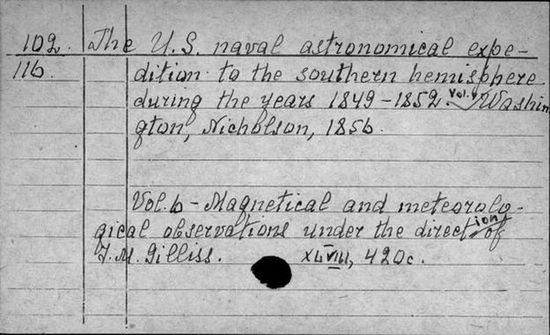 102. The U.S. naval astronomical expe-
116. dition to the southern hemisphere
during the years 1849-1852. Vol. 6 Washin
gton, Nicholson, 1856.
Vol. 6 - Magnetical and meteorolo-
gical observations under the direction of
J. M. Gilliss. XLVIII, 420c.